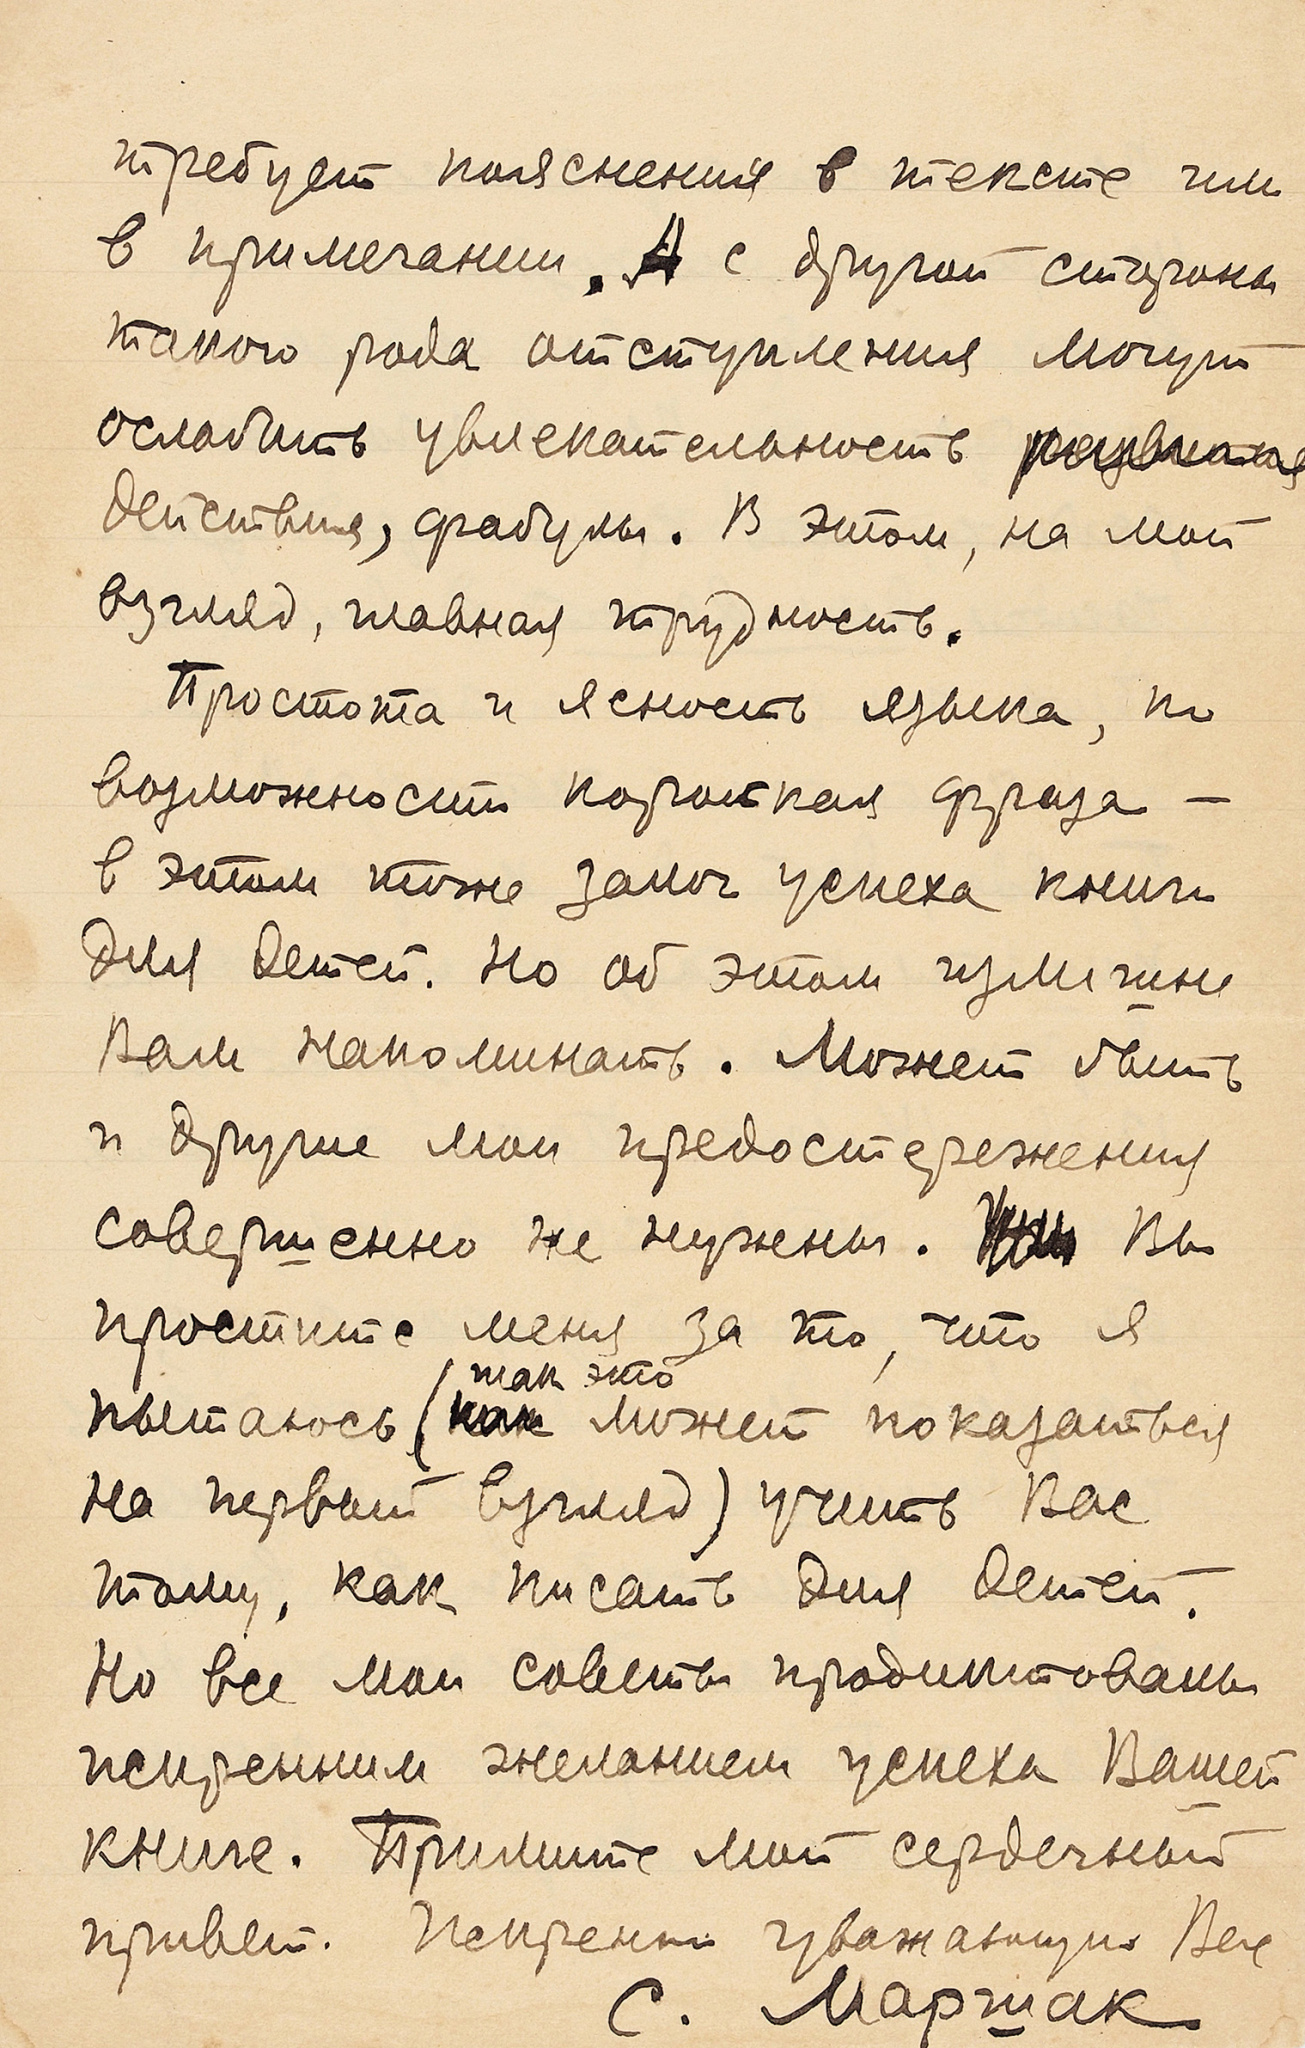 требует пояснения в тексте или
в примечании. А с другой стороны
такого рода отступления могут
ослабить увлекательность развития
действия, фабулы. В этом, на мой
взгляд, главная трудность.
Простота и ясность языка, по
возможности короткая фраза —
в этом тоже залог успеха книги
для детей. Но об этом излишне
Вам напоминать. Может быть
и другие мои предостережения
совершенно не нужны. Вы
простите меня за то, что я
так это
пытаюсь (как может показаться
на первый взгляд) учить Вас
тому, как писать для детей.
Но все мои советы продиктованы
искренним желанием успеха Вашей
книге. Примите мой сердечный
привет. Искренно уважающий Вас
С. Маршак